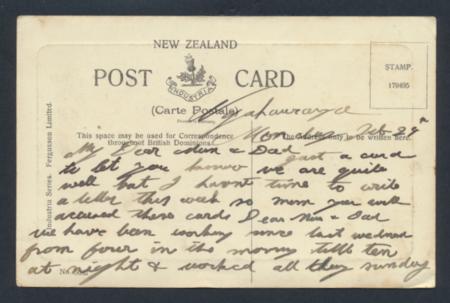 NEW ZEALAND
POST CARD
INDUSTRIA
(Carte Postale)
STAMP.
170495
This space may be used for Correspondence
throughout British Dominions.
The Address only to be written here.
Feb 29th
My Dear Mum & Dad
Just a card
to let you know we are quite
well but I havnt time to write
a letter this week so mum you will
these cards Dear Mum & Dad
we have been working since last wednesd
from four in the morning till ten
at night & worked all day sunday
Industria Series. Fergusson Limited.
No.